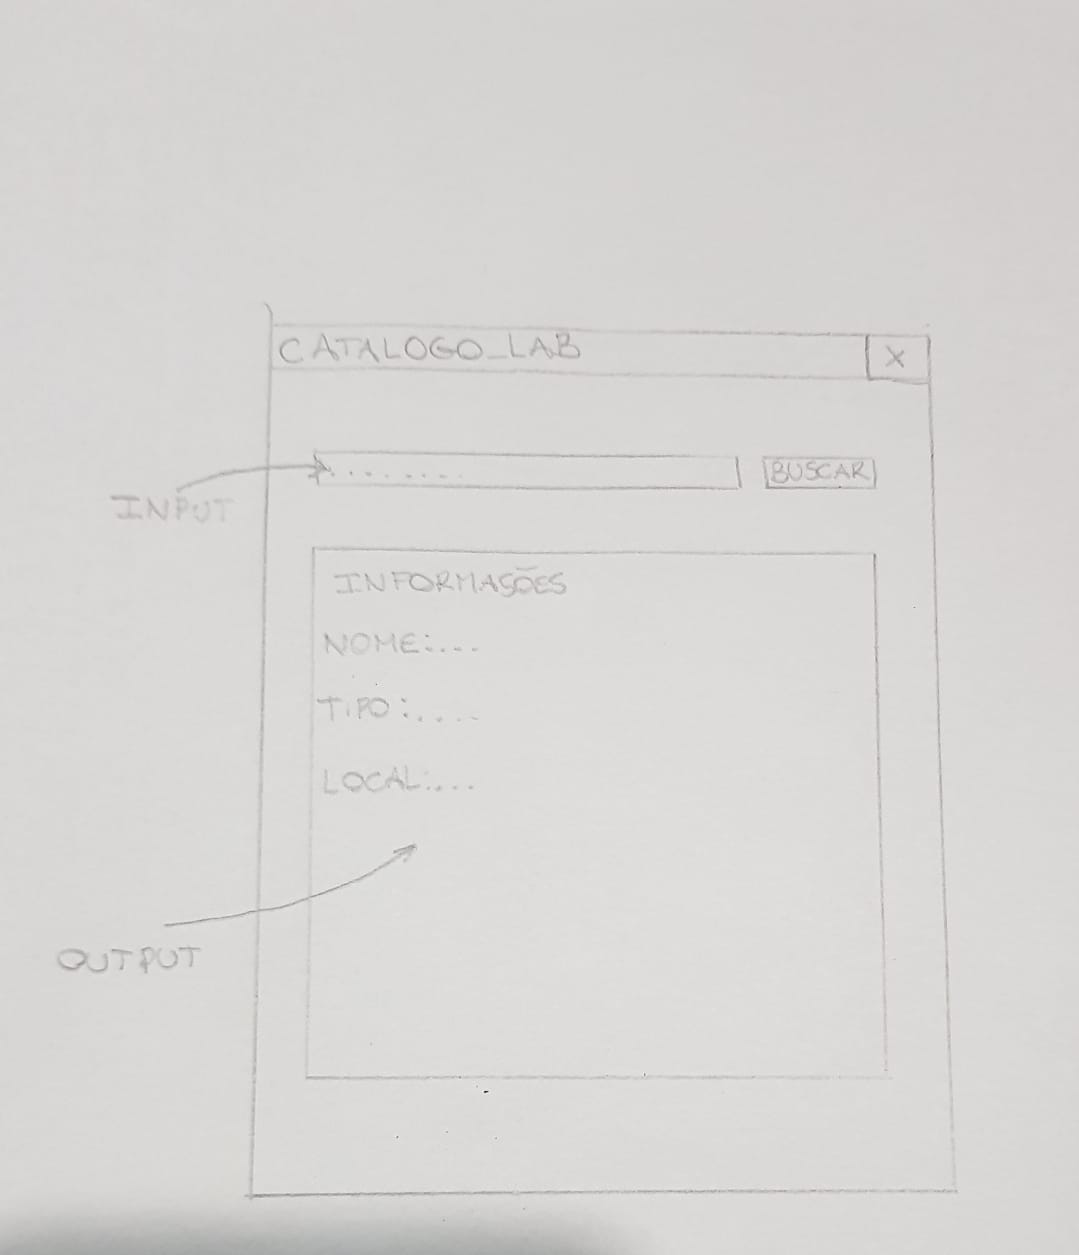 CATALOGO_LAB X
........ BUSCAR
INPUT
INFORMAÇÕES
NOME:...
TIPO:....
LOCAL:...
OUTPUT